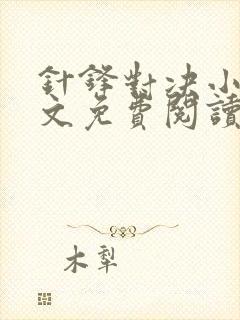 針鋒對決小
文免費閱讀
木犁